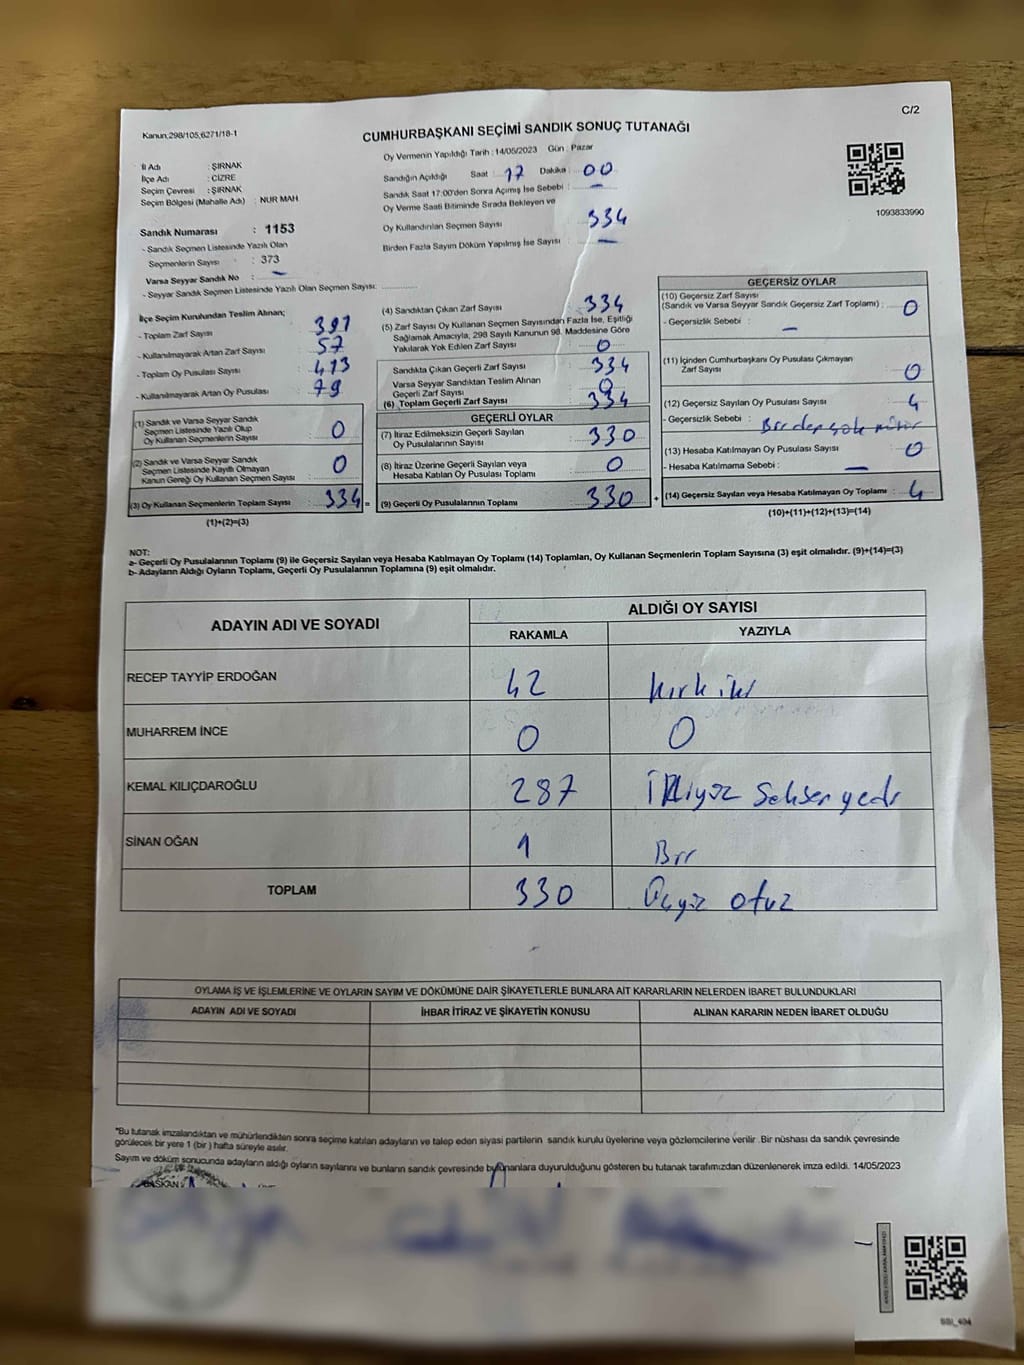 C/2
Kanun;298/105,6271/18-1
CUMHURBAŞKANI SEÇİMİ SANDIK SONUÇ TUTANAĞI
İl Adı : ŞIRNAK
İlçe Adı : CİZRE
Seçim Çevresi : ŞIRNAK
Seçim Bölgesi (Mahalle Adı) : NUR MAH
Sandık Numarası : 1153
- Sandık Seçmen Listesinde Yazılı Olan
Seçmenlerin Sayısı : 373
Varsa Seyyar Sandık No : –
- Seyyar Sandık Seçmen Listesinde Yazılı Olan Seçmen Sayısı: ............
Oy Vermenin Yapıldığı Tarih : 14/05/2023 Gün : Pazar
Sandığın Açıldığı Saat : 17 Dakika : 00
Sandık Saat 17:00'den Sonra Açımış İse Sebebi : –
Oy Verme Saati Bitiminde Sırada Bekleyen ve
Oy Kullandırılan Seçmen Sayısı : 334
Birden Fazla Sayım Döküm Yapılmış İse Sayısı : –
1093833990
İlçe Seçim Kurulundan Teslim Alınan;
- Toplam Zarf Sayısı : 391
- Kullanılmayarak Artan Zarf Sayısı : 57
- Toplam Oy Pusulası Sayısı : 413
- Kullanılmayarak Artan Oy Pusulası : 79
(1) Sandık ve Varsa Seyyar Sandık
Seçmen Listesinde Yazılı Olup
Oy Kullanan Seçmenlerin Sayısı : 0
(2) Sandık ve Varsa Seyyar Sandık
Seçmen Listesinde Kayıtlı Olmayan
Kanun Gereği Oy Kullanan Seçmen Sayısı : 0
(3) Oy Kullanan Seçmenlerin Toplam Sayısı : 334 =
(1)+(2)=(3)
(4) Sandıktan Çıkan Zarf Sayısı : 334
(5) Zarf Sayısı Oy Kullanan Seçmen Sayısından Fazla İse, Eşitliği
Sağlamak Amacıyla, 298 Sayılı Kanunun 98. Maddesine Göre
Yakılarak Yok Edilen Zarf Sayısı : 0
Sandıkta Çıkan Geçerli Zarf Sayısı : 334
Varsa Seyyar Sandıktan Teslim Alınan
Geçerli Zarf Sayısı : 0
(6) Toplam Geçerli Zarf Sayısı : 334
GEÇERLİ OYLAR
(7) İtiraz Edilmeksizin Geçerli Sayılan
Oy Pusulalarının Sayısı : 330
(8) İtiraz Üzerine Geçerli Sayılan veya
Hesaba Katılan Oy Pusulası Toplamı : 0
(9) Geçerli Oy Pusulalarının Toplamı : 330 +
GEÇERSİZ OYLAR
(10) Geçersiz Zarf Sayısı
(Sandık ve Varsa Seyyar Sandık Geçersiz Zarf Toplamı) : 0
- Geçersizlik Sebebi : –
(11) İçinden Cumhurbaşkanı Oy Pusulası Çıkmayan
Zarf Sayısı : 0
(12) Geçersiz Sayılan Oy Pusulası Sayısı : 4
- Geçersizlik Sebebi : Birden çok mühür
(13) Hesaba Katılmayan Oy Pusulası Sayısı : 0
- Hesaba Katılmama Sebebi : –
(14) Geçersiz Sayılan veya Hesaba Katılmayan Oy Toplamı : 4
(10)+(11)+(12)+(13)=(14)
NOT:
a- Geçerli Oy Pusulalarının Toplamı (9) ile Geçersiz Sayılan veya Hesaba Katılmayan Oy Toplamı (14) Toplamları, Oy Kullanan Seçmenlerin Toplam Sayısına (3) eşit olmalıdır. (9)+(14)=(3)
b- Adayların Aldığı Oyların Toplamı, Geçerli Oy Pusulalarının Toplamına (9) eşit olmalıdır.
ADAYIN ADI VE SOYADI ALDIĞI OY SAYISI
RAKAMLA YAZIYLA
RECEP TAYYİP ERDOĞAN 42 kırk iki
MUHARREM İNCE 0 0
KEMAL KILIÇDAROĞLU 287 İkiyüz Seksen yedi
SİNAN OĞAN 1 Bir
TOPLAM 330 Üçyüz otuz
OYLAMA İŞ VE İŞLEMLERİNE VE OYLARIN SAYIM VE DÖKÜMÜNE DAİR ŞİKAYETLERLE BUNLARA AİT KARARLARIN NELERDEN İBARET BULUNDUKLARI
ADAYIN ADI VE SOYADI İHBAR İTİRAZ VE ŞİKAYETİN KONUSU ALINAN KARARIN NEDEN İBARET OLDUĞU
"Bu tutanak imzalandıktan ve mühürlendikten sonra seçime katılan adayların ve talep eden siyasi partilerin sandık kurulu üyelerine veya gözlemcilerine verilir .Bir nüshası da sandık çevresinde
görülecek bir yere 1 (bir ) hafta süreyle asılır.
Sayım ve döküm sonucunda adayların aldığı oyların sayılarını ve bunların sandık çevresinde bulunanlara duyurulduğunu gösteren bu tutanak tarafımızdan düzenlenerek imza edildi. 14/05/2023
BAŞKAN